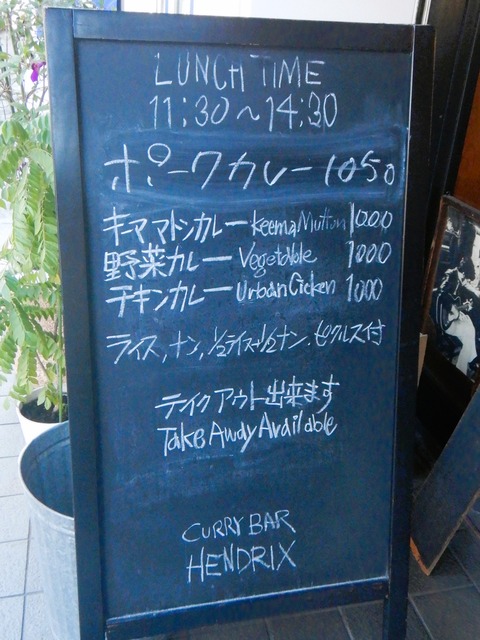 LUNCH TIME
11:30~14:30
ポークカレー 1050
キーママトンカレー Keema Mutton 1000
野菜カレー Vegetable 1000
チキンカレー Urban Cicken 1000
ライス,ナン,1/2ライス+1/2ナン.ピクルス付
テイクアウト出来ます
Take Away Available
CURRY BAR
HENDRIX